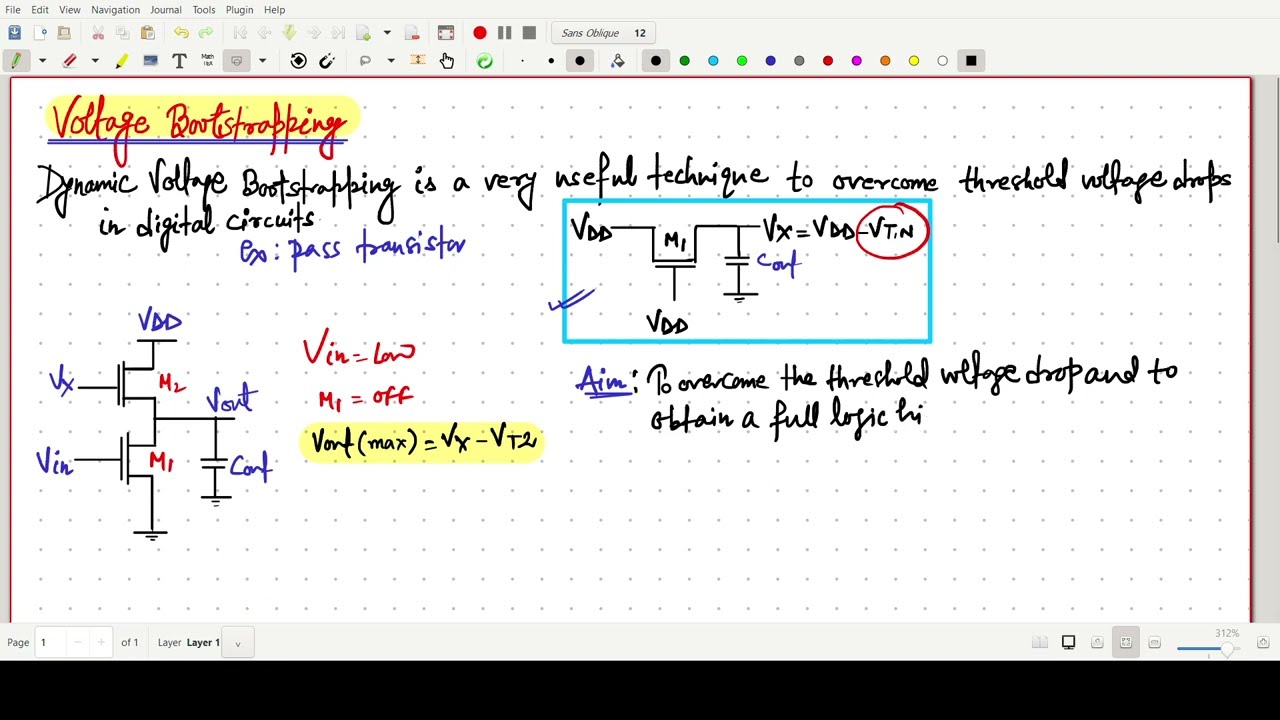 File Edit View Navigation Journal Tools Plugin Help
Sans Oblique 12
Voltage Bootstrapping
Dynamic Voltage Bootstrapping is a very useful technique to overcome threshold voltage drops
in digital circuits
Ex: pass transistor
VDD M1 Vx = VDD - VT,N
Cout
VDD
VDD
Vx M2
Vout
Vin M1 Cout
Vin = Low
M1 = off
Vout (max) = Vx - VT2
Aim: To overcome the threshold voltage drop and to
obtain a full logic hi
Page 1 of 1 Layer Layer 1
312%